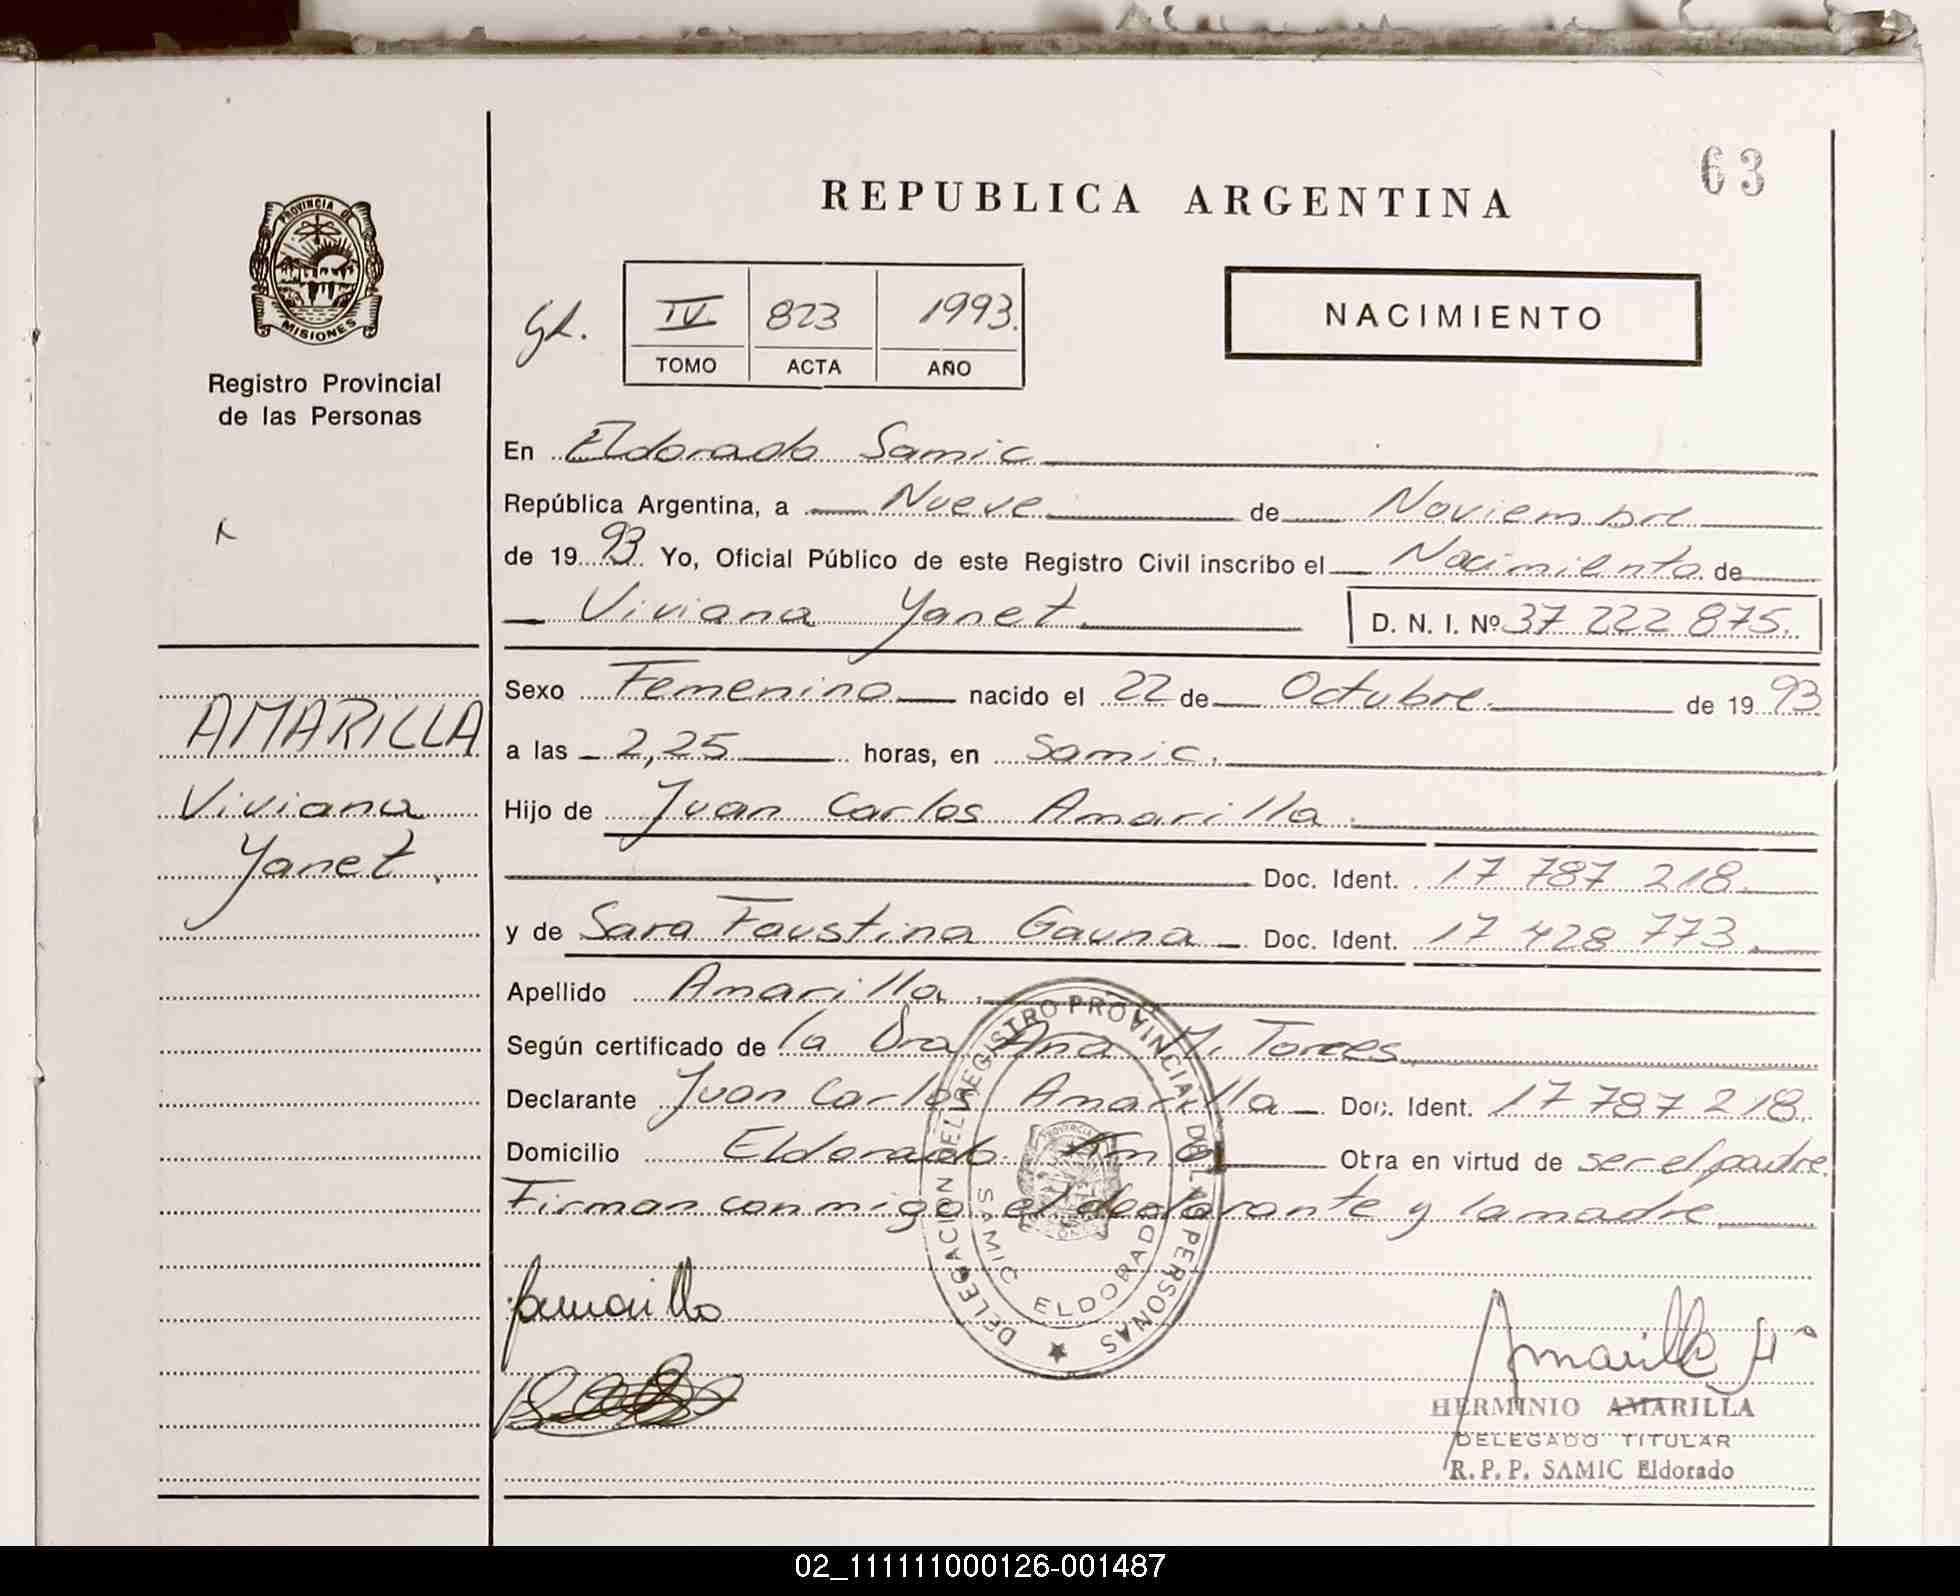 63
REPUBLICA ARGENTINA
PROVINCIA DE MISIONES
Registro Provincial
de las Personas
IV 823 1993.
TOMO ACTA AÑO
NACIMIENTO
En Eldorado Samic
República Argentina, a Nueve de Noviembre
de 1993. Yo, Oficial Público de este Registro Civil inscribo el Nacimiento de
Viviana Yanet. D. N. I. Nº 37 222 875.
AMARILLA
Viviana
Yanet.
Sexo Femenino nacido el 22 de Octubre. de 1993
a las 2,25 horas, en Samic.
Hijo de Juan Carlos Amarilla.
Doc. Ident. 17 787 218.
y de Sara Faustina Gauna Doc. Ident. 17 428 773.
Apellido Amarilla.
Según certificado de la Dra Ana M. Torres
Declarante Juan Carlos Amarilla Doc. Ident. 17 787 218.
Domicilio Eldorado Km Otra en virtud de ser el padre.
Firman conmigo el declarante y la madre
DELEGACION DEL REGISTRO PROVINCIAL DE LAS PERSONAS
SAMIC ELDORADO
Amarilla
Amarilla Hº
HERMINIO AMARILLA
DELEGADO TITULAR
R.P.P. SAMIC Eldorado
02_111111000126-001487